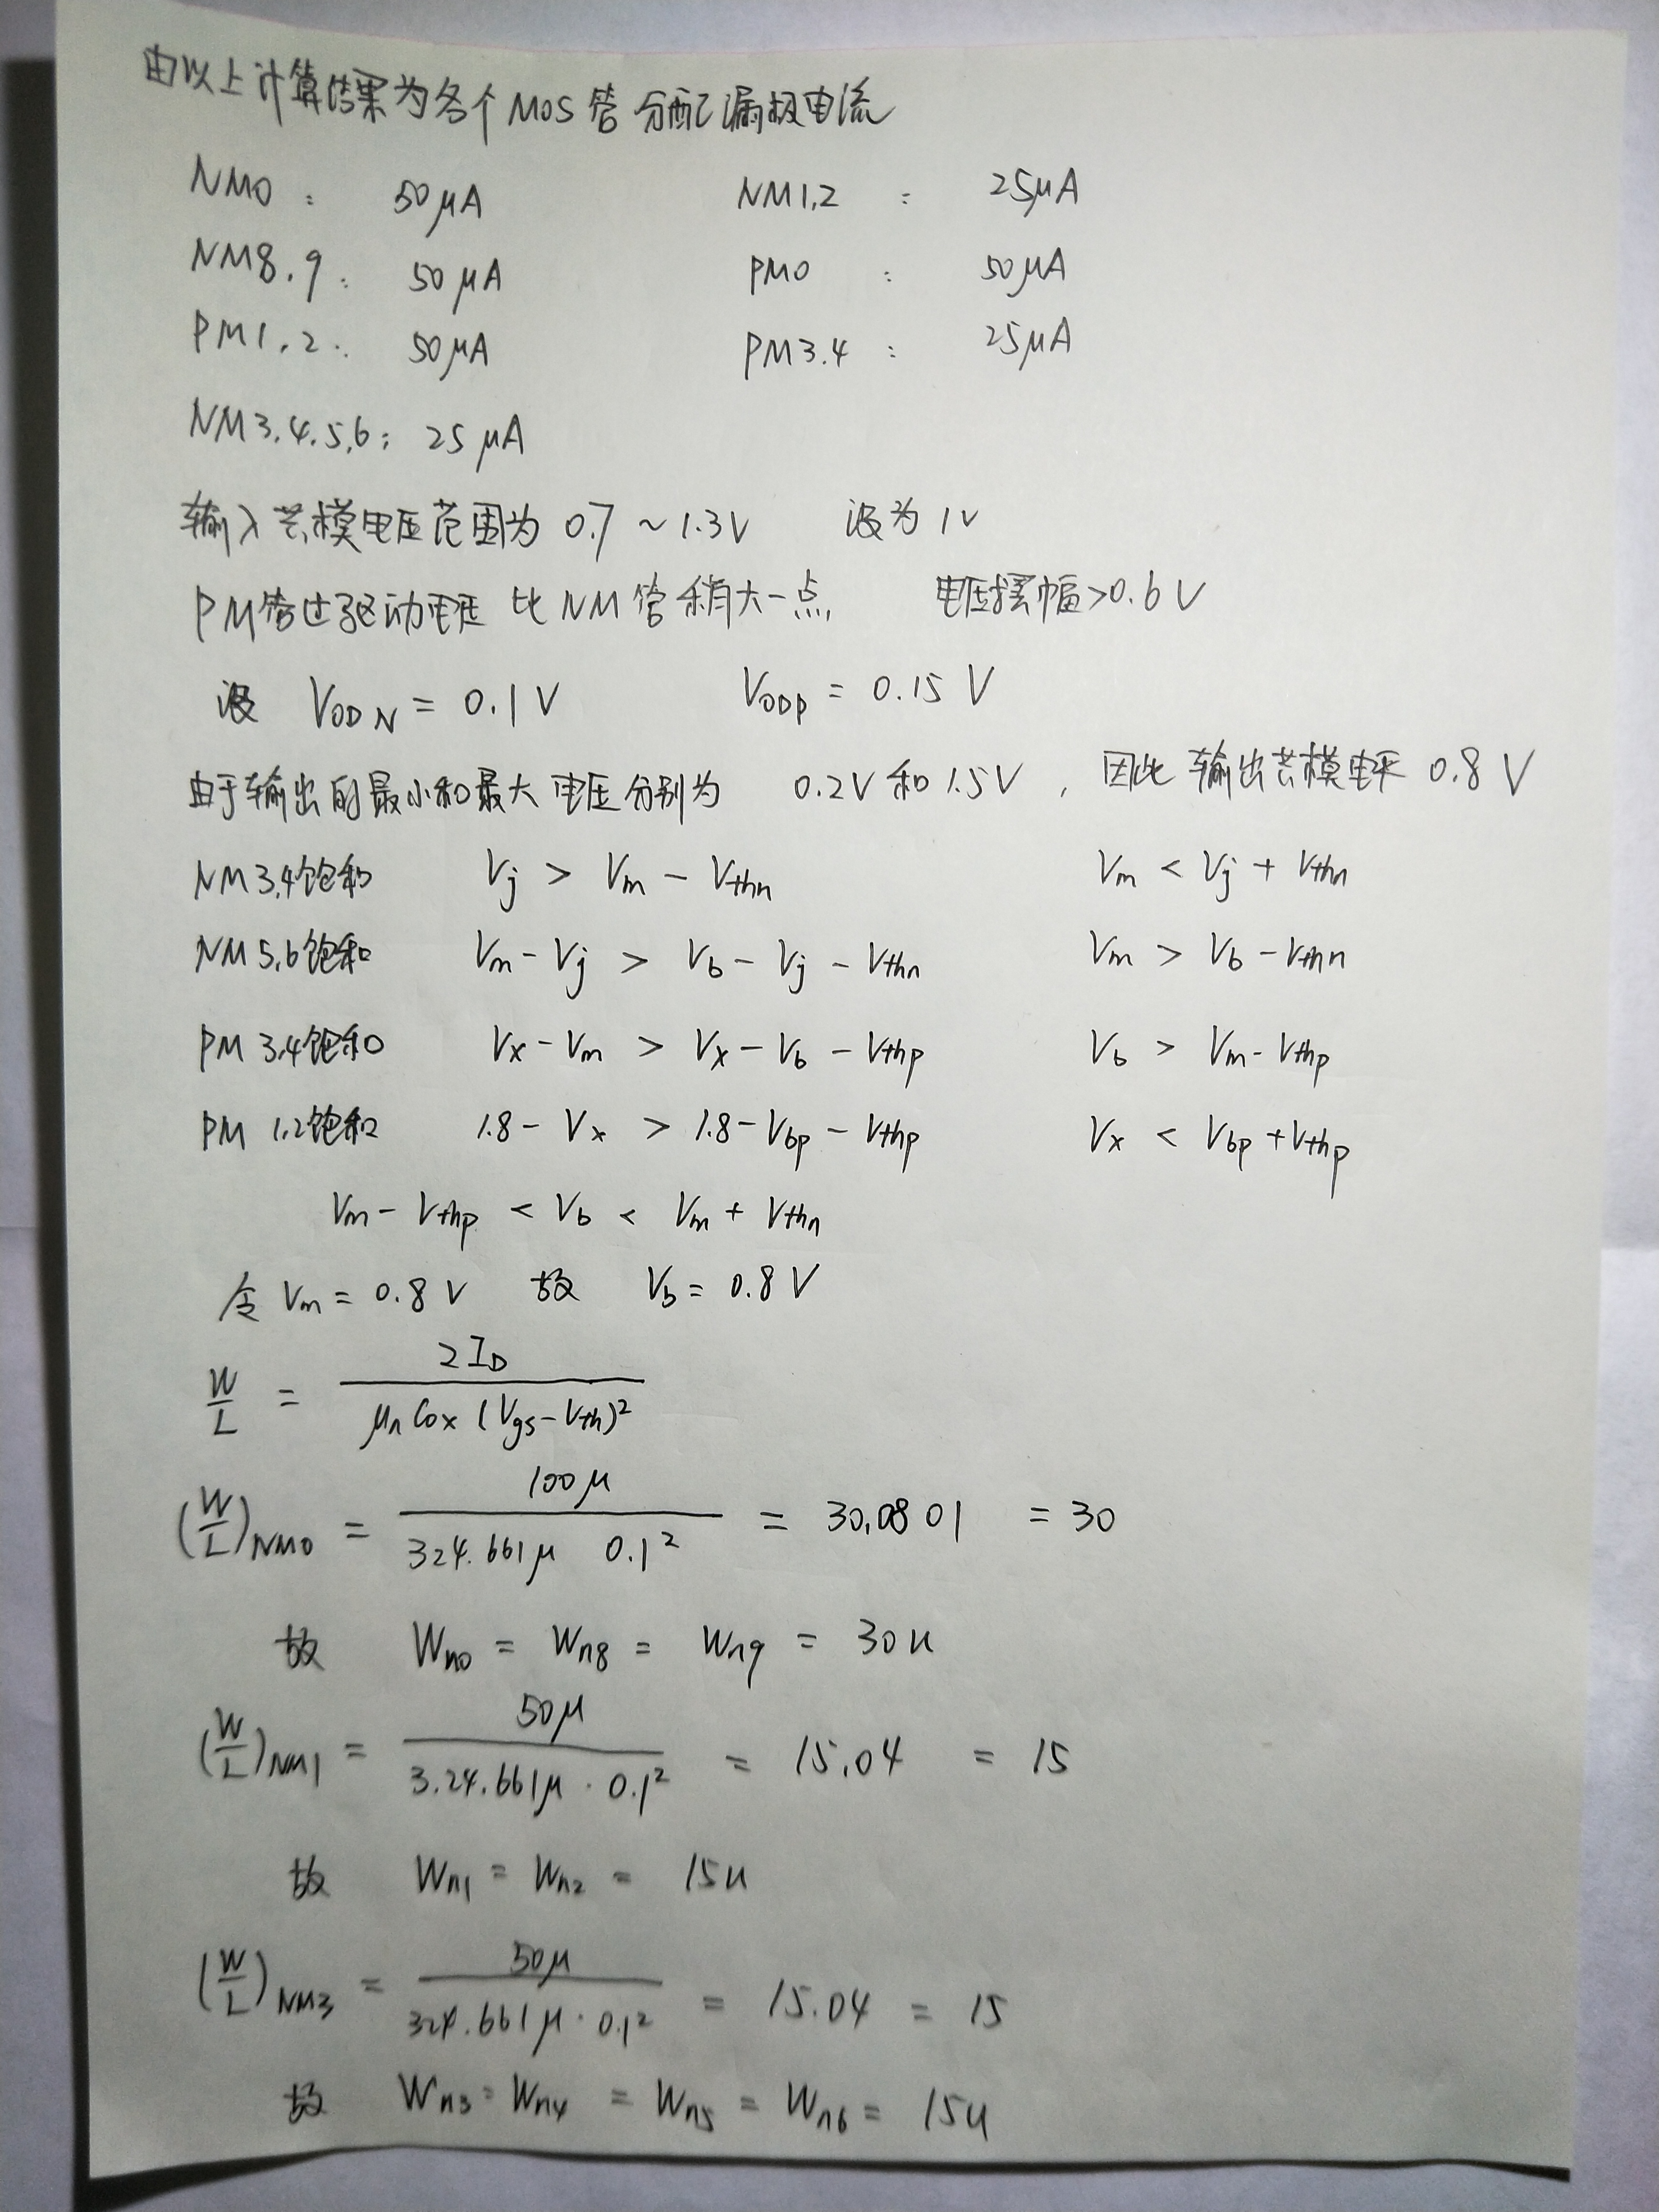 由以上计算结果为各个MOS管分配漏极电流
NM0: 50μA NM1,2: 25μA
NM8,9: 50μA PM0: 50μA
PM1,2: 50μA PM3,4: 25μA
NM3,4,5,6: 25μA
输入共模电压范围为 0.7~1.3V 设为 1V
PM管过驱动电压比NM管稍大一点, 电压摆幅>0.6V
设 VODN = 0.1V VODP = 0.15V
由于输出的最小和最大电压分别为 0.2V和1.5V, 因此输出共模电平 0.8V
NM3,4饱和 Vj > Vm - Vthn Vm < Vj + Vthn
NM5,6饱和 Vm - Vj > Vb - Vj - Vthn Vm > Vb - Vthn
PM3,4饱和 Vx - Vm > Vx - Vb - Vthp Vb > Vm - Vthp
PM1,2饱和 1.8 - Vx > 1.8 - Vbp - Vthp Vx < Vbp + Vthp
Vm - Vthp < Vb < Vm + Vthn
令 Vm = 0.8V 故 Vb = 0.8V
W/L = 2ID / μnCox (Vgs - Vth)²
(W/L)NM0 = 100μ / 324.661μ 0.1² = 30.0801 = 30
故 Wn0 = Wn8 = Wn9 = 30u
(W/L)NM1 = 50μ / 3.24.661μ · 0.1² = 15.04 = 15
故 Wn1 = Wn2 = 15u
(W/L)NM3 = 50μ / 324.661μ · 0.1² = 15.04 = 15
故 Wn3 = Wn4 = Wn5 = Wn6 = 15u